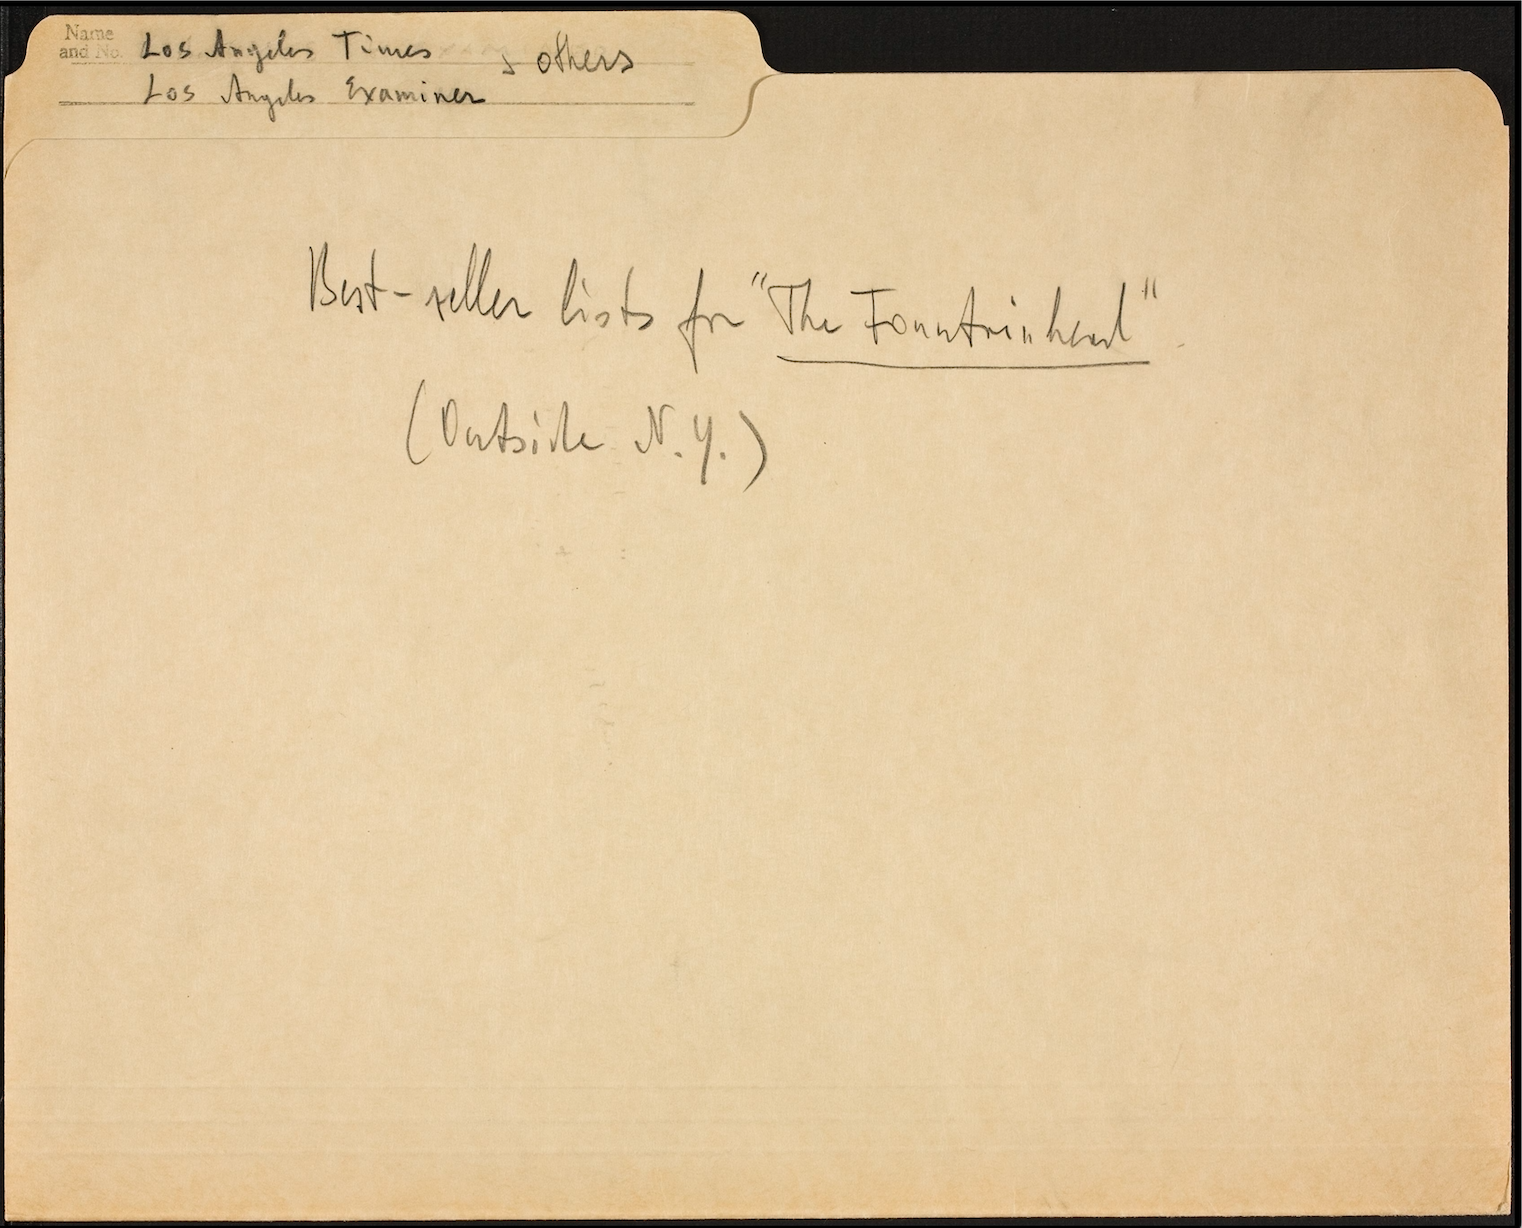 Name
and No.
Los Angeles Times & others
Los Angeles Examiner
Best-seller lists for "The Fountainhead"
(Outside N.Y.)